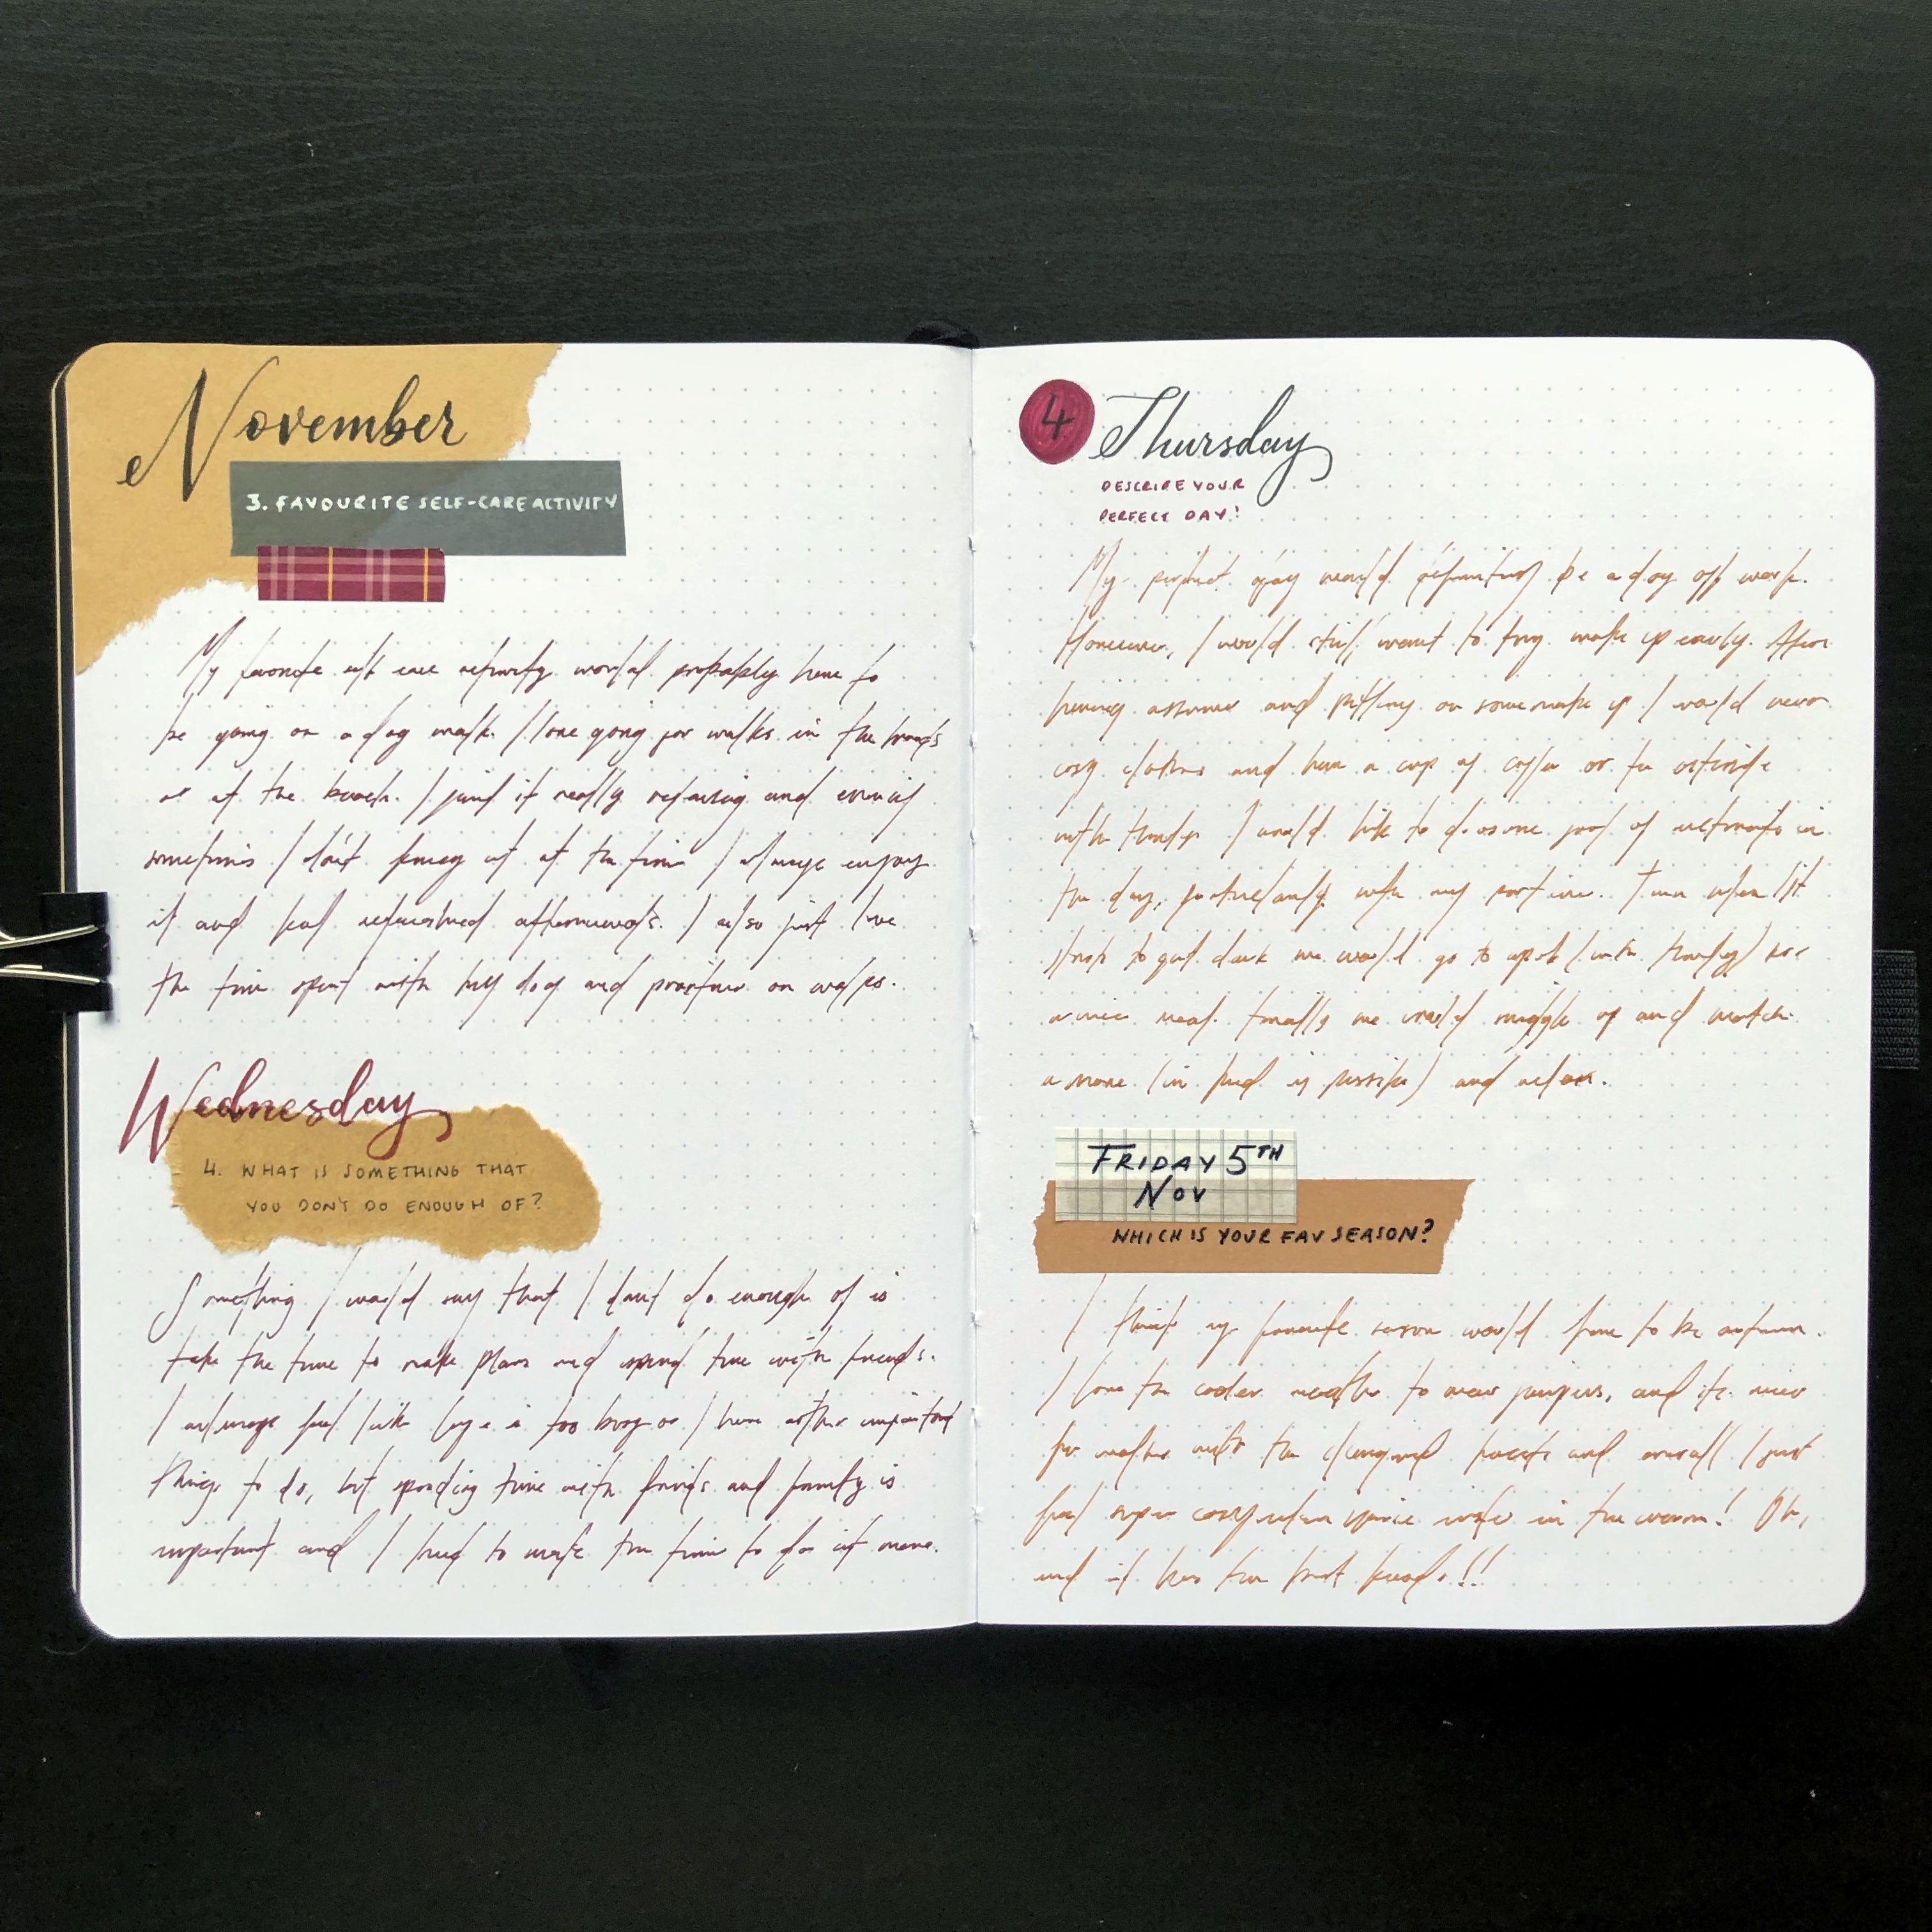 November
3. FAVOURITE SELF-CARE ACTIVITY
My favorite self care activity would probably have to
be going on a dog walk. I love going for walks in the woods
or at the beach. I find it really relaxing and even if
sometimes I don't fancy it at the time I always enjoy
it and feel refreshed afterwards. I also just love
the time spent with my dog and partner on walks.
Wednesday
4. WHAT IS SOMETHING THAT
YOU DON'T DO ENOUGH OF?
Something I would say that I don't do enough of is
take the time to make plans and spend time with friends.
I always feel like life is too busy or I have other important
things to do, but spending time with friends and family is
important and I need to make the time to do it more.
4 Thursday
DESCRIBE YOUR
PERFECT DAY!
My perfect day would definitely be a day off work.
However, I would still want to try wake up early. After
having a shower and putting on some make up I would wear
cosy clothes and have a cup of coffee or tea outside
with I would like to do some sort of activity in
the day, particularly with my partner. Then when it
starts to get dark we would go to a pub (with) for
a nice meal. Finally we would snuggle up and watch
a movie (in bed if possible) and relax.
FRIDAY 5TH
NOV
WHICH IS YOUR FAV SEASON?
I think my favourite season would have to be autumn.
I love the cooler weather to wear jumpers, and its nice
for walks with the changing and overall I just
feel super cosy when you're in the warm! Oh,
and it has the best !!